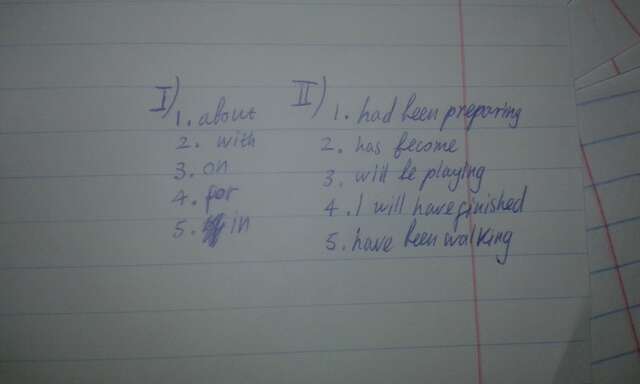 I)
1. about
2. with
3. on
4. for
5. in
II)
1. had been preparing
2. has become
3. will be playing
4. I will have finished
5. have been walking